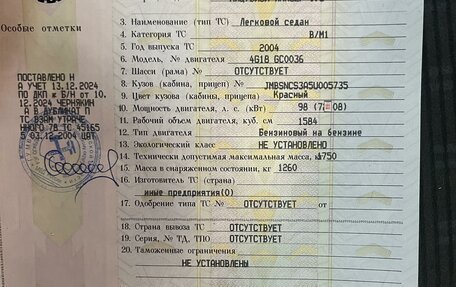 Особые отметки
ПОСТАВЛЕНО Н
А УЧЕТ 13.12.2024
ПО ДКП ж Б/Н от 10.
12.2024 ЧЕРНЯКИН
А В ДУБЛИКАТ П
ТС ВЗАМ УТРАЧЕ
ННОГО 78 ТС 45165
5 03.12.2004 ЦАТ
3. Наименование (тип ТС) Легковой седан
4. Категория ТС B/M1
5. Год выпуска ТС 2004
6. Модель, № двигателя 4G18 GC0036
7. Шасси (рама) № ОТСУТСТВУЕТ
8. Кузов (кабина, прицеп) № JMBSNCS3A5U005735
9. Цвет кузова (кабины, прицепа) Красный
10. Мощность двигателя, л. с. (кВт) 98 (72.08)
11. Рабочий объем двигателя, куб. см 1584
12. Тип двигателя Бензиновый на бензине
13. Экологический класс НЕ УСТАНОВЛЕНО
14. Технически допустимая максимальная масса, кг 1750
15. Масса в снаряженном состоянии, кг 1260
16. Изготовитель ТС (страна)
иные предприятия(0)
17. Одобрение типа ТС № ОТСУТСТВУЕТ
18. Страна вывоза ТС ОТСУТСТВУЕТ
19. Серия, № ТД, ТПО ОТСУТСТВУЕТ
20. Таможенные ограничения
НЕ УСТАНОВЛЕНЫ